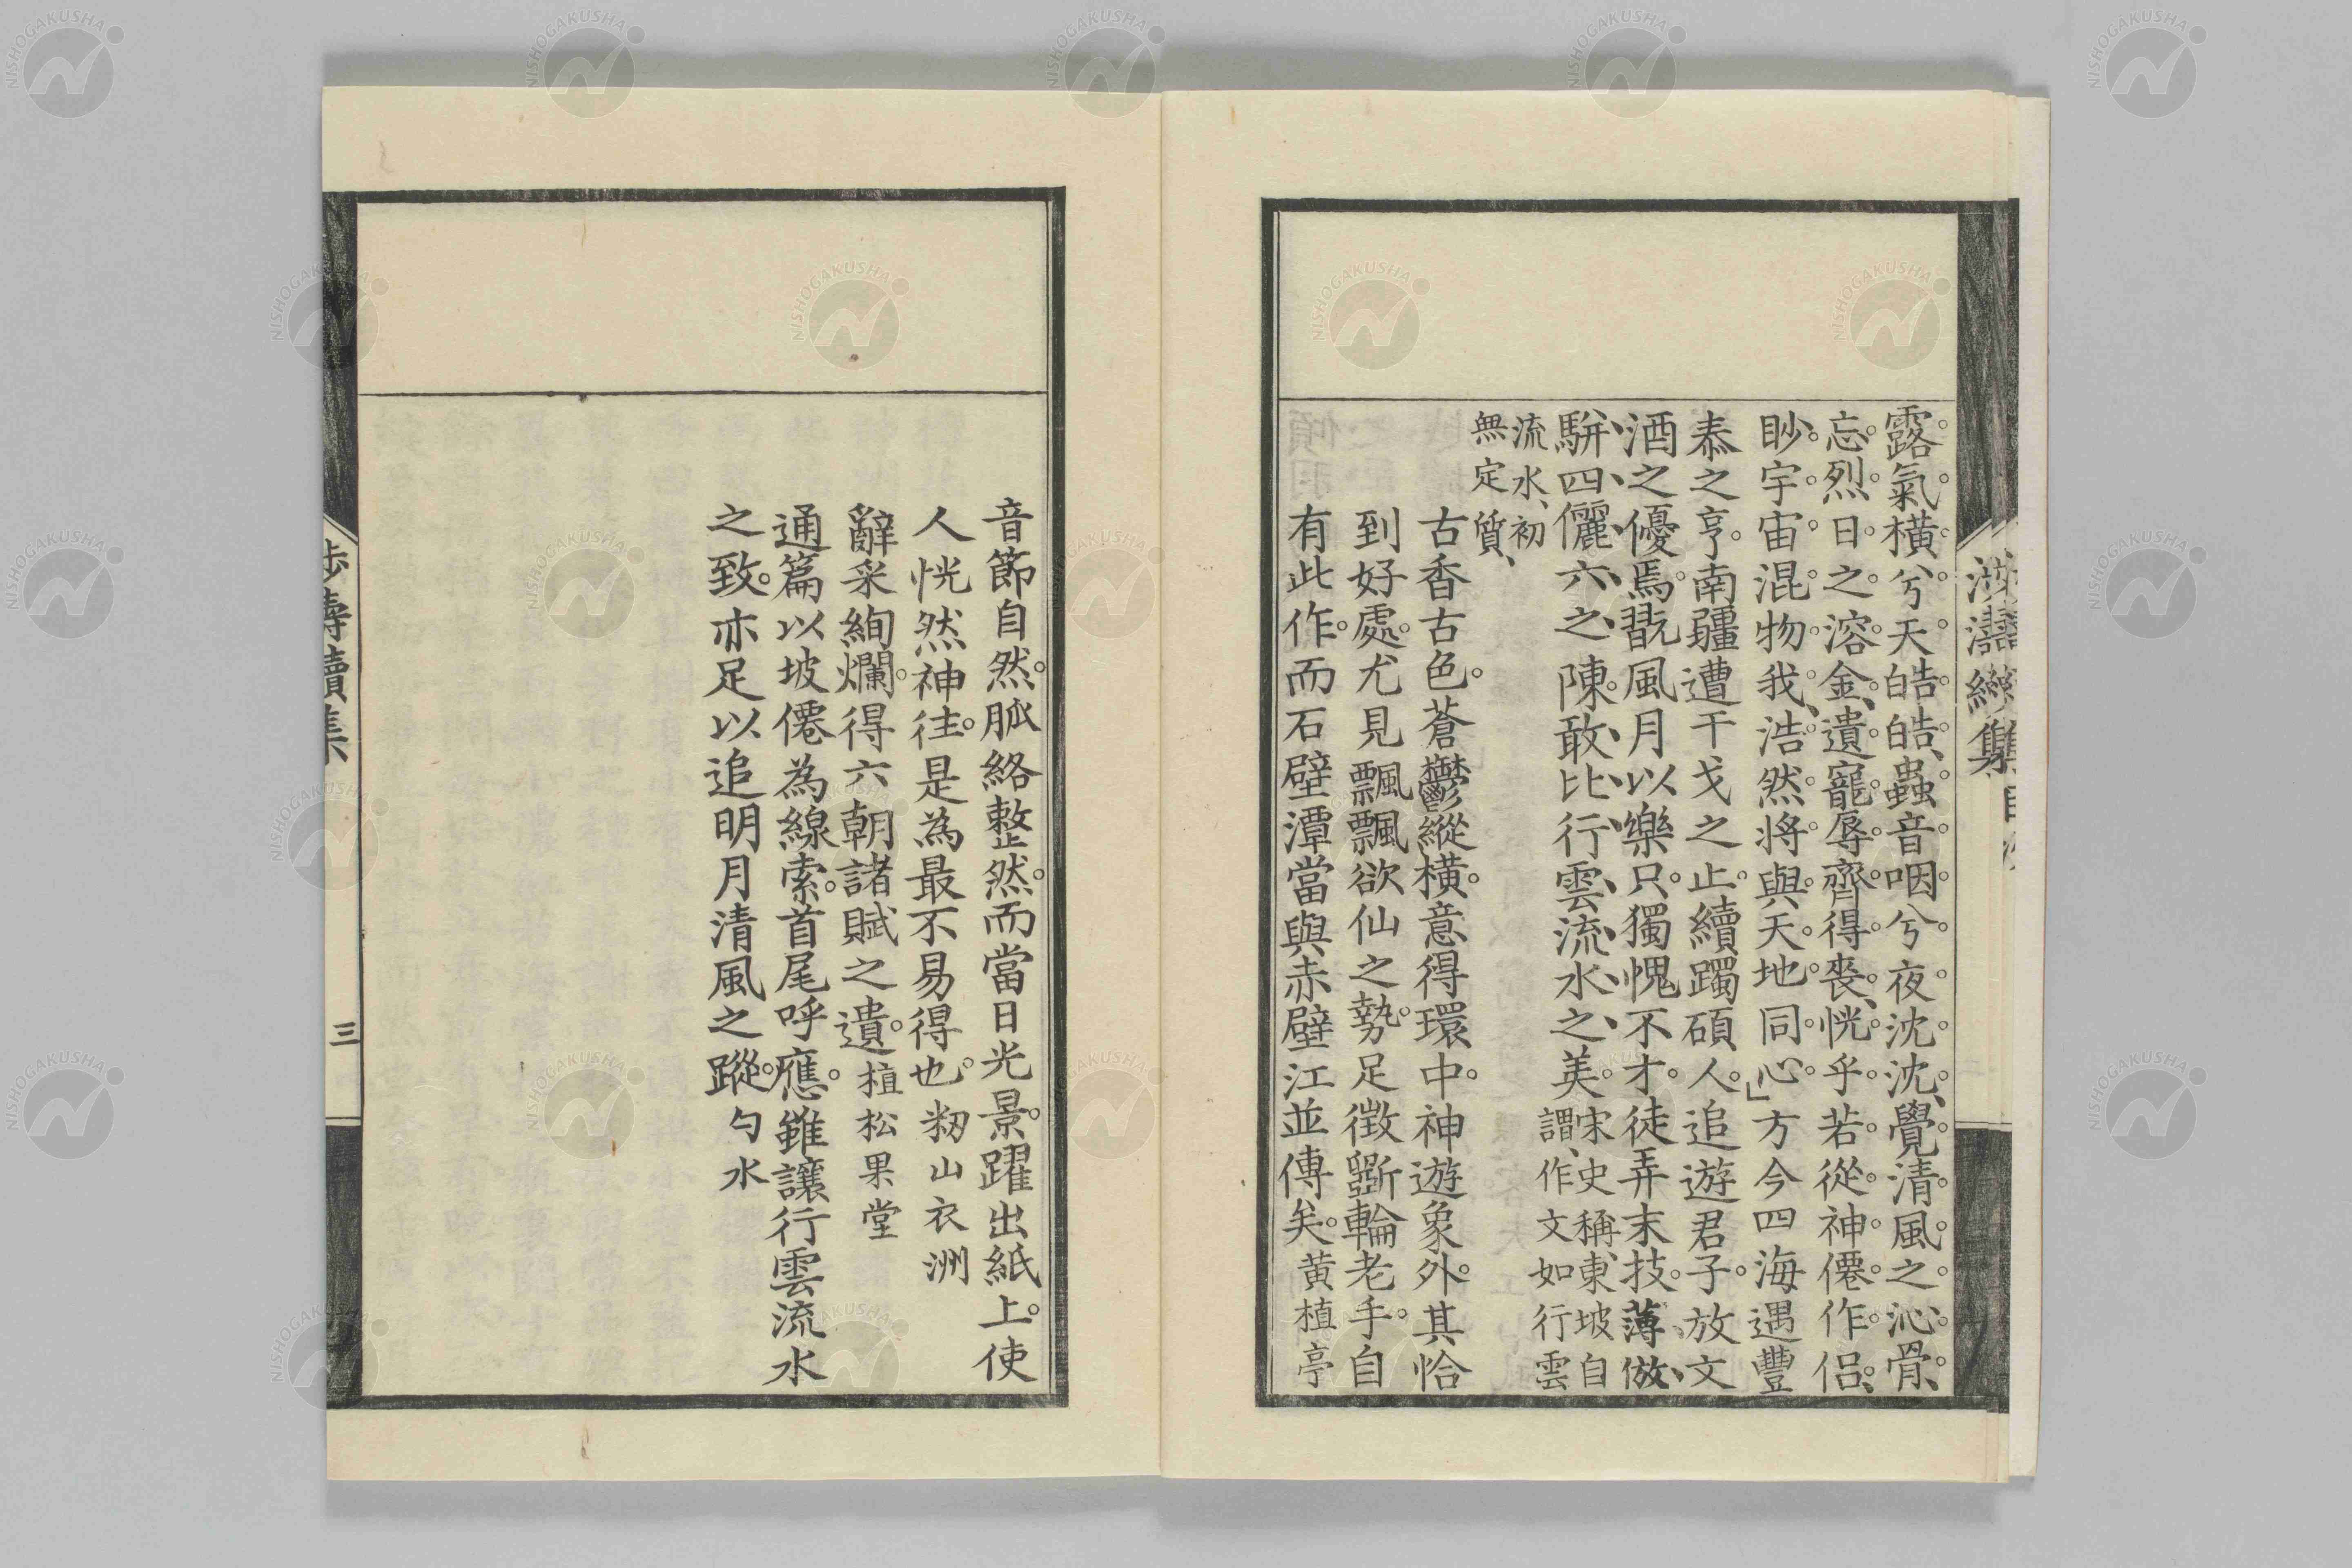 露氣橫兮天皓皓、蟲音咽兮夜沈沈、覺清風之沁骨、
忘烈日之溶金、遺寵辱齊得喪、恍乎若從神僊作侶、
眇宇宙混物我、浩然將與天地同心。」方今四海遇豐
泰之亨。南疆遭干戈之止。續躅碩人。追遊君子。放文
酒之優焉。翫風月以樂只。獨愧不才。徒弄末技。薄倣
駢四儷六之陳。敢比行雲流水之美。宋史稱、東坡自
謂、作文如行雲
流水、初
無定質、
古香古色。蒼鬱縱橫。意得環中。神遊象外。其恰
到好處。尤見飄飄欲仙之勢。足徵斲輪老手。自
有此作。而石壁潭當與赤壁江並傳矣。黃植亭
音節自然。脈絡整然。而當日光景。躍出紙上。使
人恍然神往。是為最不易得也。籾山衣洲
辭采絢爛。得六朝諸賦之遺。植松果堂
通篇以坡僊為線索。首尾呼應。雖讓行雲流水
之致。亦足以追明月清風之蹤。勺水
濤續集
三